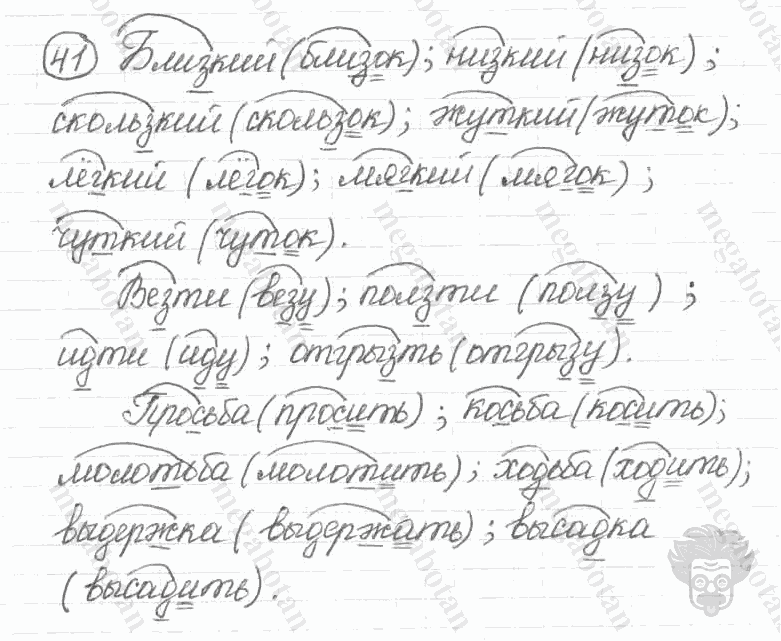 41 Близкий (близок); низкий (низок);
скользкий (скользок); жуткий (жуток);
лёгкий (лёгок); мягкий (мягок);
чуткий (чуток).
Везти (везу); ползти (ползу);
идти (иду); отгрызть (отгрызу).
Просьба (просить); косьба (косить);
молотьба (молотить); ходьба (ходить);
выдержка (выдержать); высадка
(высадить).
megabotan